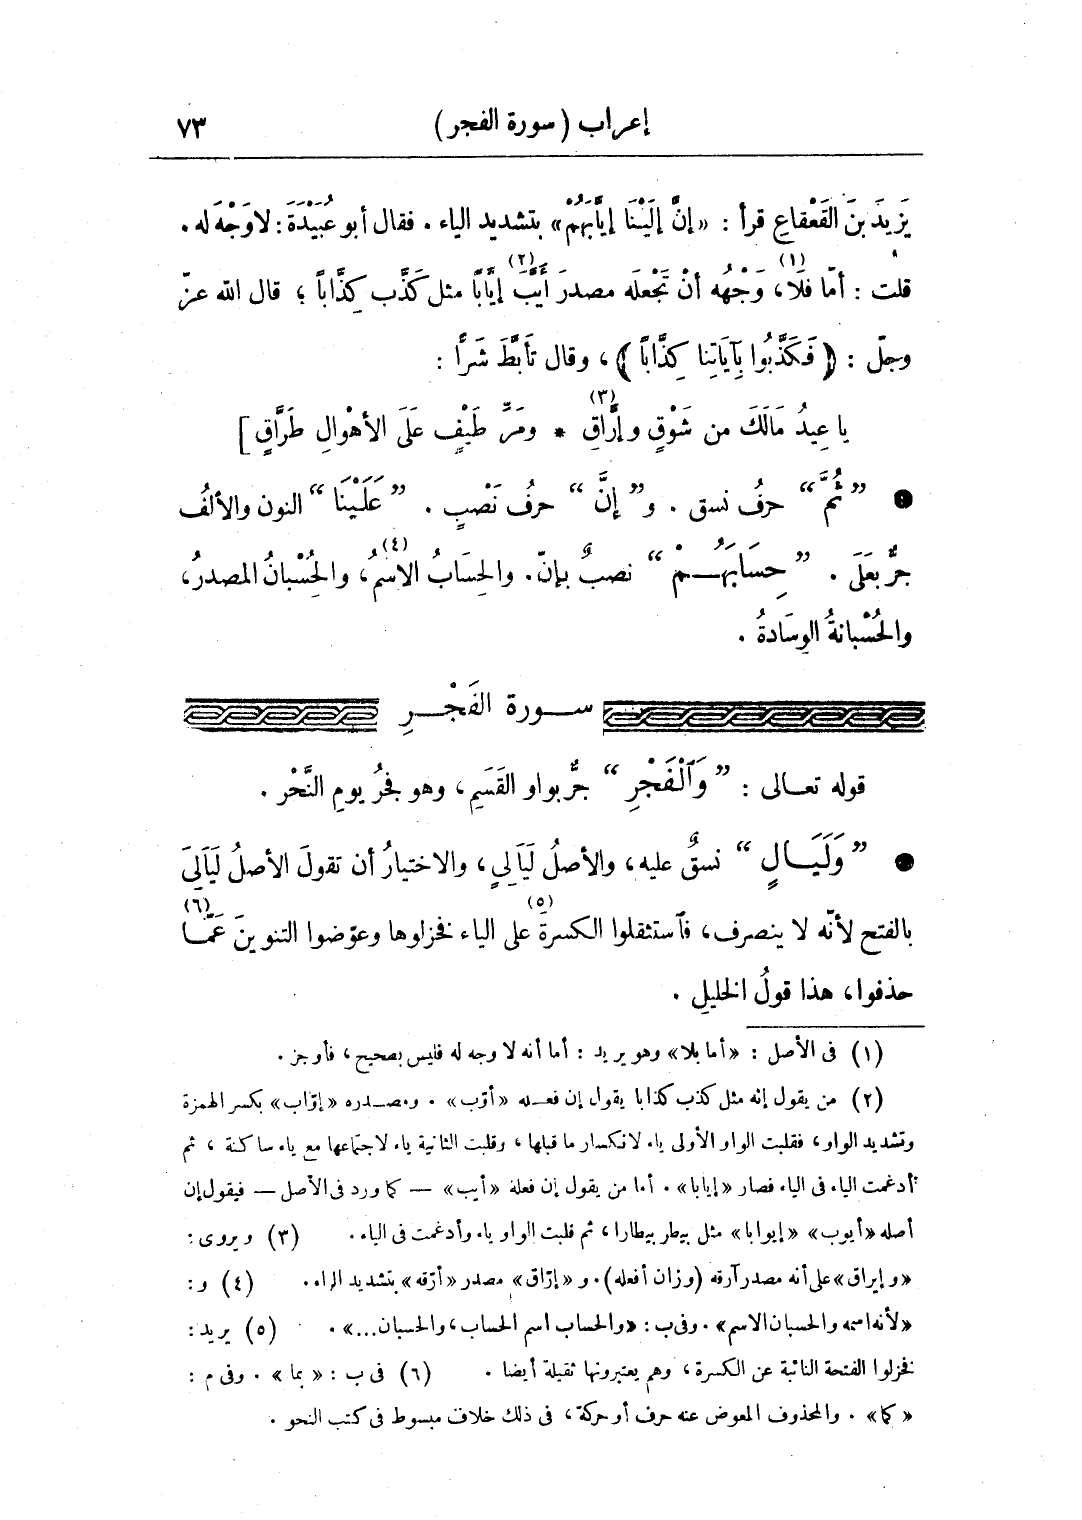 إعراب (سورة الفجر) ٧٣
يَزيدَ بنَ القَعْقاعِ قرأ : «إنَّ إلَيْنَا إيَّابَهُمْ» بتشديد الياء . فقال أبو عُبَيْدَةَ : لا وَجْهَ له .
قلت : أمّا فَلَا(١)، وَجْهُه أنْ تَجْعلَه مصدرَ أَيَّبَ(٢) إيَّابًا مثل كَذَّب كِذَّاباً ؛ قال الله عزّ
وجلّ : ﴿ فَكَذَّبُوا بِآيَاتِنا كِذَّاباً ﴾، وقال تأبَّطَ شَرًّا :
يا عِيدُ مَالَكَ من شَوْقٍ وإرَّاقِ(٣) * ومَرِّ طَيْفٍ عَلَى الأهْوالِ طَرَّاقِ ]
● ” ثُمَّ “ حرفُ نسق . و” إنَّ “ حرفُ نَصْبٍ . ” عَلَيْنَا “ النون والألفُ
جرٌّ بعَلَى . ” حِسَابَهُــمْ “ نصبٌ بإنّ. والحِسَابُ الاسْمُ(٤)، والحُسْبانُ المصدرُ،
والحُسْبانةُ الوِسَادةُ .
ســورة الفَجْــرِ
قوله تعــالى : ” وَٱلْفَجْرِ “ جرٌّ بواو القَسَمِ، وهو فجرُ يومِ النَّحْر .
● ” وَلَيَــالٍ “ نسقٌ عليه، والأصلُ لَيَالِيٍ، والاختيارُ أن تقولَ الأصلُ لَيَالِيَ
بالفتح لأنّه لا ينصرف، فٱستثقلوا الكسرةَ(٥) على الياء فخزلوها وعوّضوا التنوينَ عَمَّا(٦)
حذفوا، هذا قولُ الخليلِ .
(١) فى الأصل : «أما بلا» وهو يريد : أما أنه لا وجه له فليس بصحيح، فأوجز .
(٢) من يقول إنه مثل كذب كذابا يقول إن فعـله «أوّب» . ومصـدره «إوّاب» بكسر الهمزة
وتشديد الواو، فقلبت الواو الأولى ياء لانكسار ما قبلها، وقلبت الثانية ياء لاجتماعها مع ياء ساكنة ، ثم
أدغمت الياء فى الياء فصار «إيابا» . أما من يقول إن فعله «أيب» — كما ورد فى الأصل — فيقول إن
أصله «أيوب» «إيوابا» مثل بيطر بيطارا، ثم قلبت الواو ياء وأدغمت فى الياء . (٣) ويروى :
«وإيراق» على أنه مصدر آرقه (وزان أفعله) . و «إرّاق» مصدر «أرّقه» بتشديد الراء . (٤) و :
«لأنه اسمه والحسبان الاسم» . وفى ب : «والحساب اسم الحساب، والحسبان...» . (٥) يريد :
فخزلوا الفتحة النائبة عن الكسرة، وهم يعتبرونها ثقيلة أيضا . (٦) فى ب : «بما» . وفى م :
«كما» . والمحذوف المعوض عنه حرف أو حركة، فى ذلك خلاف مبسوط فى كتب النحو .